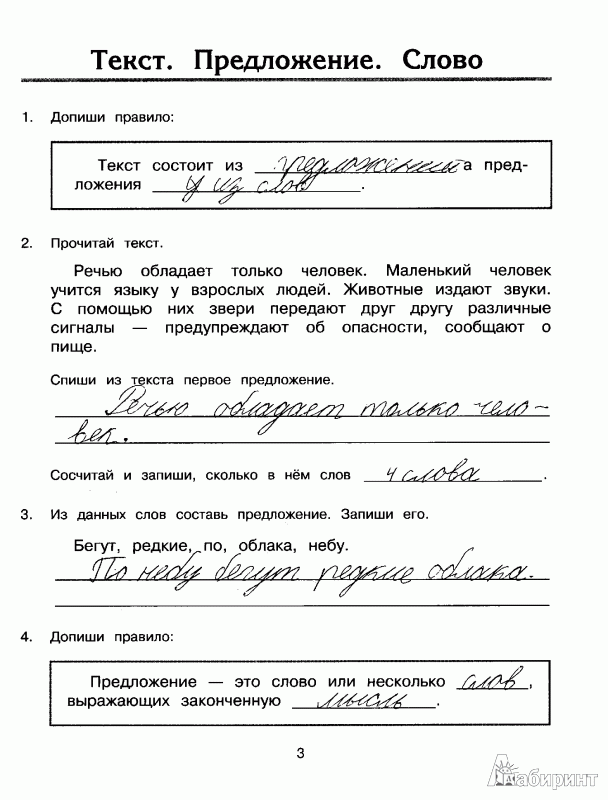 Текст. Предложение. Слово
1. Допиши правило:
Текст состоит из предложений, а пред-
ложения из слов.
2. Прочитай текст.
Речью обладает только человек. Маленький человек
учится языку у взрослых людей. Животные издают звуки.
С помощью них звери передают друг другу различные
сигналы — предупреждают об опасности, сообщают о
пище.
Спиши из текста первое предложение.
Речью обладает только чело-
век.
Сосчитай и запиши, сколько в нём слов 4 слова.
3. Из данных слов составь предложение. Запиши его.
Бегут, редкие, по, облака, небу.
По небу бегут редкие облака.
4. Допиши правило:
Предложение — это слово или несколько слов,
выражающих законченную мысль.
3
Лабиринт